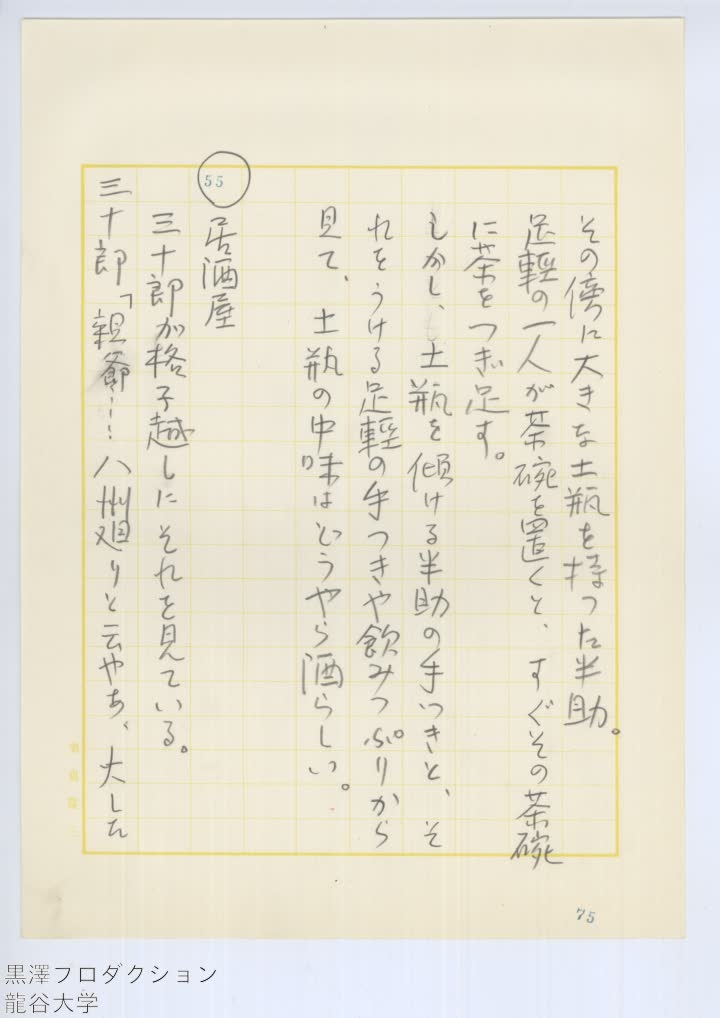 その傍に大きな土瓶を持った半助。
足軽の一人が茶碗を置くと、すぐその茶碗
に茶をつぎ足す。
しかし、土瓶を傾ける半助の手つきと、そ
れをうける足軽の手つきや飲みっぷりから
見て、土瓶の中味はどうやら酒らしい。
55
居酒屋
三十郎が格子越しにそれを見ている。
三十郎「親爺……八州廻りと云やあ、大した
75
黒澤プロダクション
龍谷大学